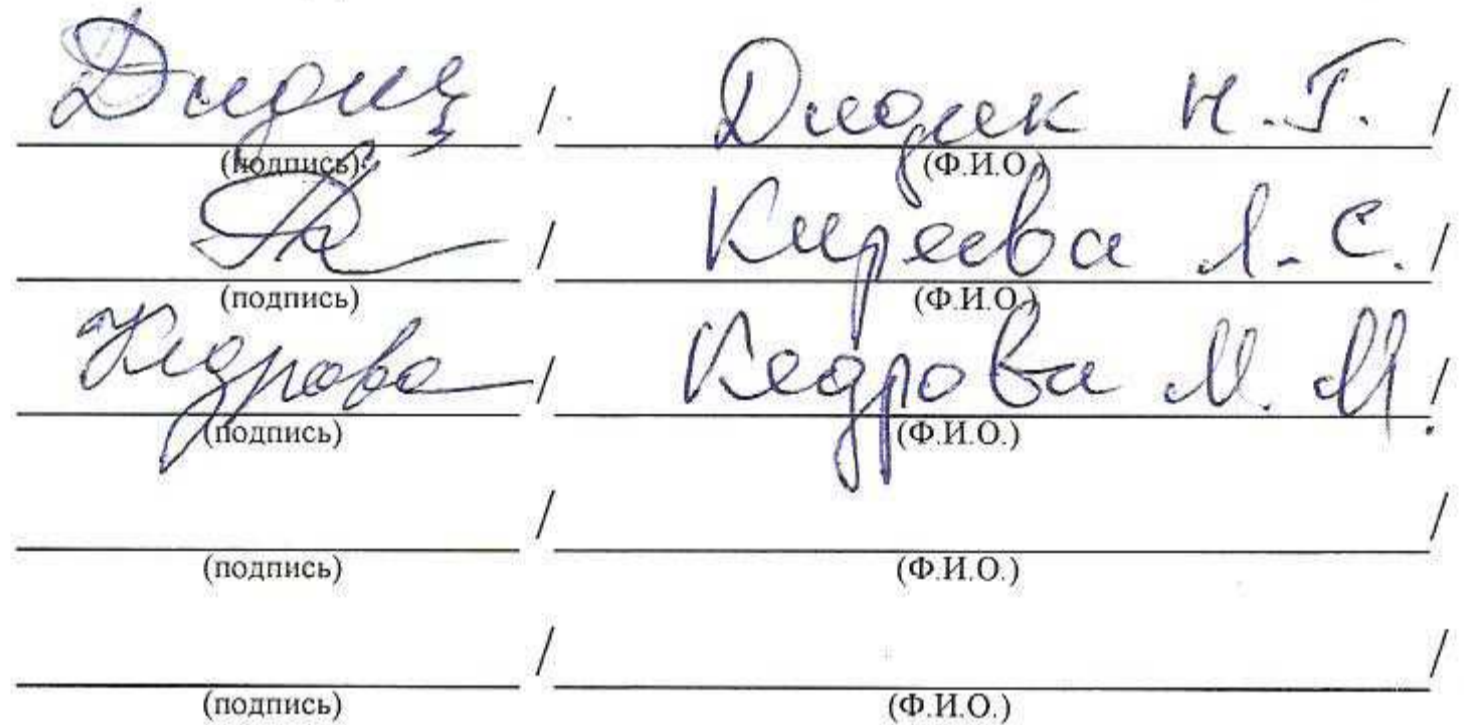 Дидик / Дидик Н.Г. /
(подпись) (Ф.И.О.)
/ Киреева Л.С. /
(подпись) (Ф.И.О.)
Кедрова / Кедрова М.М. /
(подпись) (Ф.И.О.)
/ /
(подпись) (Ф.И.О.)
/ /
(подпись) (Ф.И.О.)